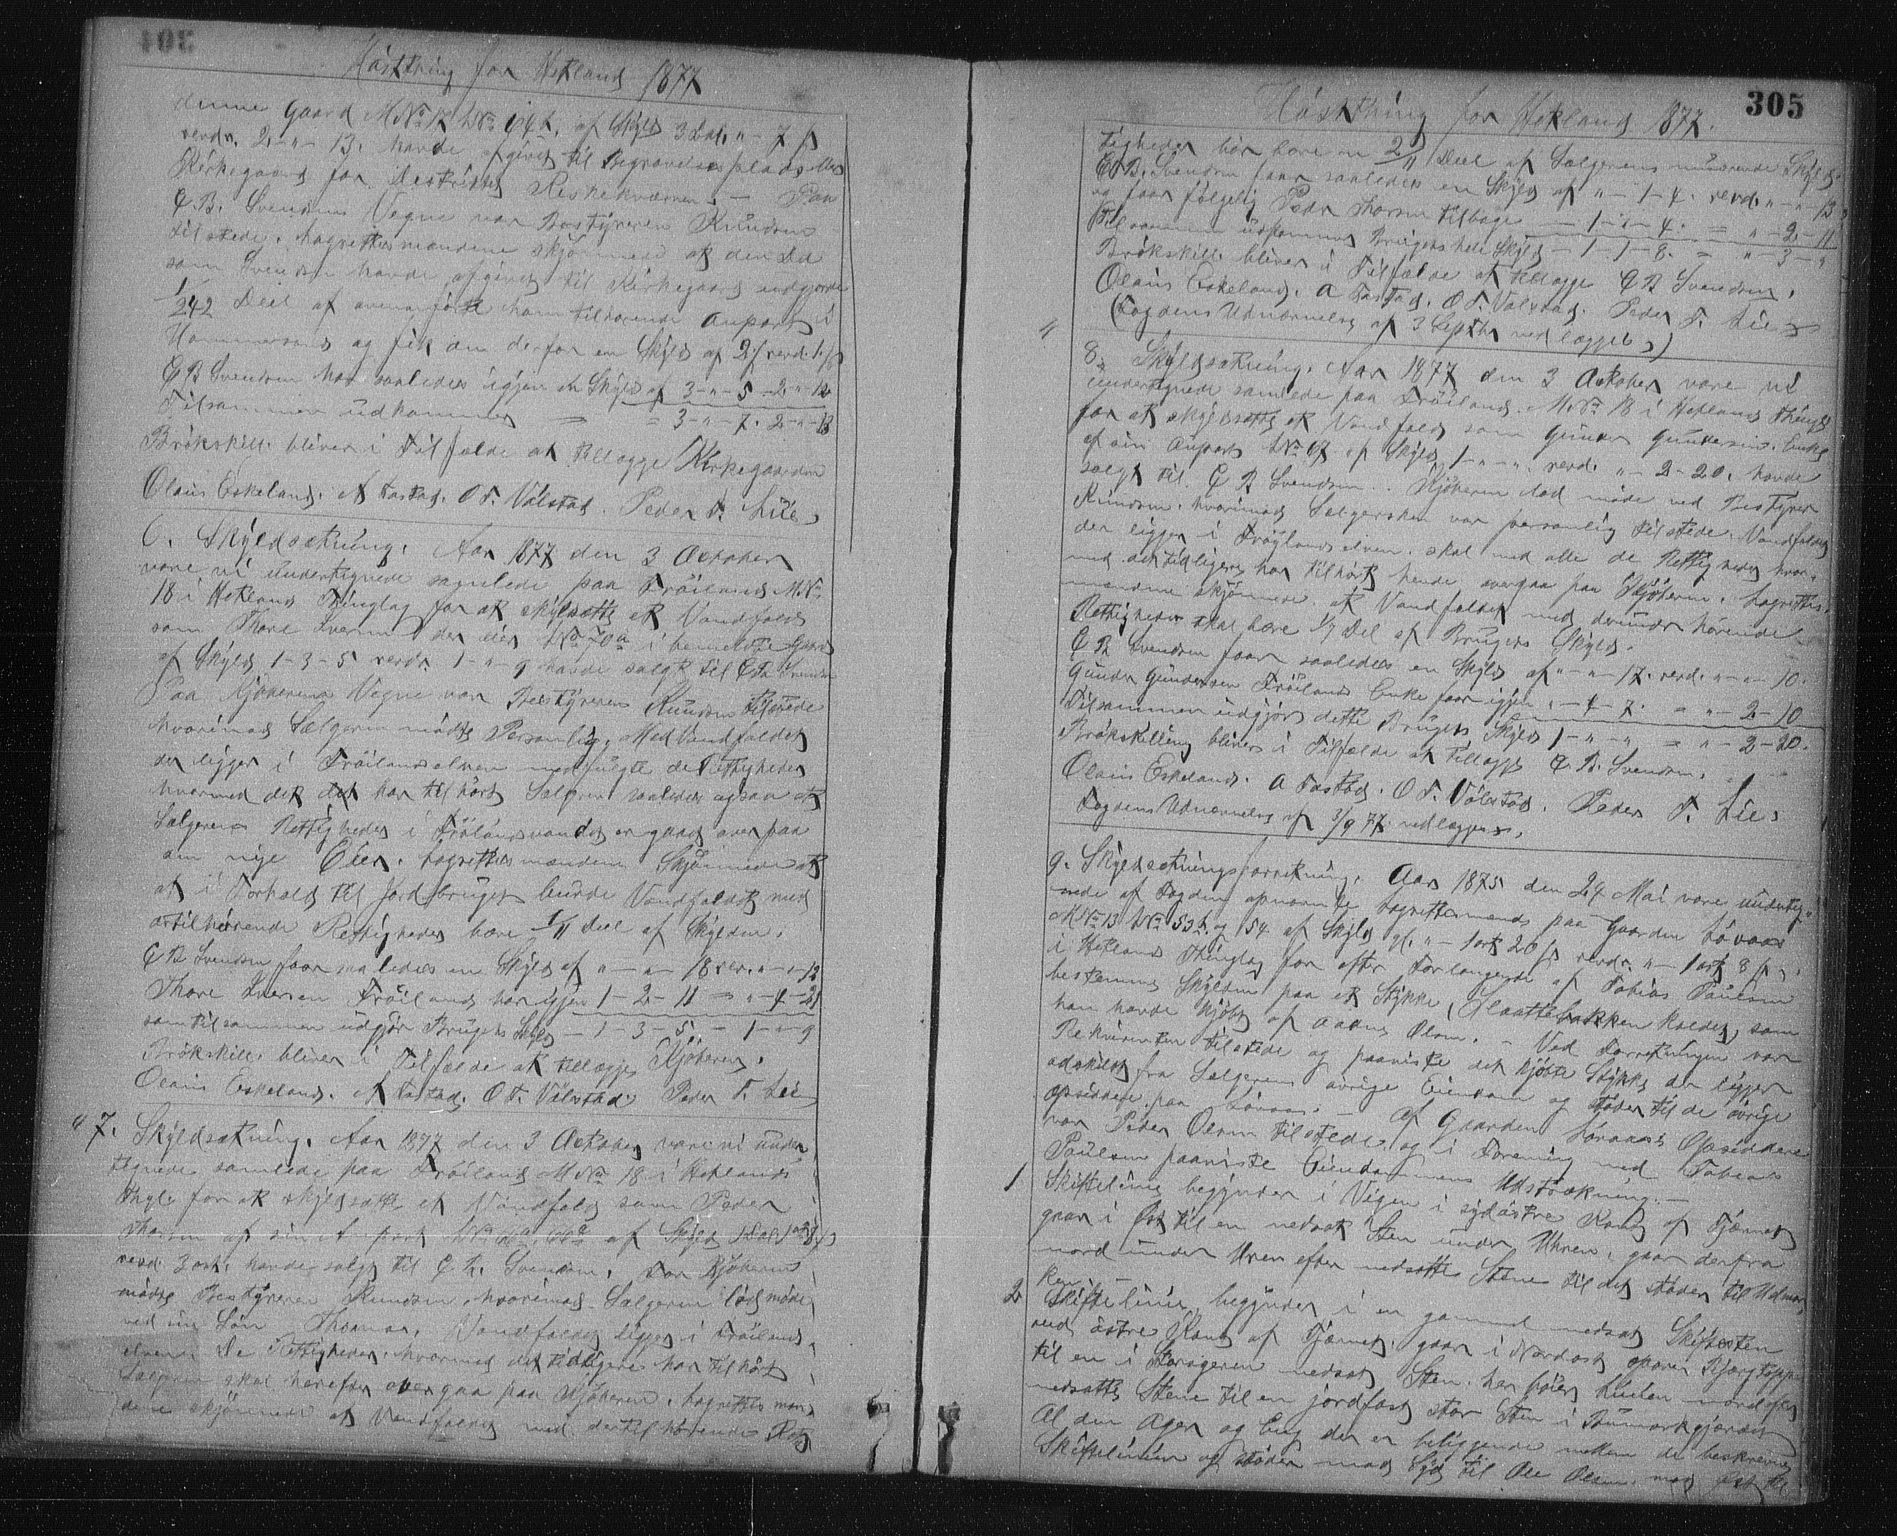 Høstthing for Hetland 1877
denne Gaard M No 12 L No 64 b, af Skyld 3 Dal. " - 7 ß
revdr. 2 - " - 13. havde afgivet til Begravelsesplads eller
Kirkegaard for Destriktet Riskekværnen. — Paa
C. B. Svendsens Vegne var Bestyreren Knudsen
tilstede. Lagrettesmændene skjønnede at den Del
som Svendsen havde afgivet til Kirkegaard udgjorde
1/242 Deel af ovenanførte ham tilhørende Anpart i
Hommersand og fik den derfor en Skyld af 2 ß revd. 1 ß
C B Svendsen har saaledes igjen en Skyld af 3 - " - 5 - 2 - " - 12
Tilsammen udkommer = 3 - " - 7. 2 - " - 13
Brøkskill. bliver i Tilfælde at tillægge Kirkegaarden
Olaus Eskeland. A Tastad. O T. Válstad. Peder T. Lie
6. Skyldsætning. Aar 1877 den 3 October
vare vi undertegnede samlede paa Frøiland M No
18 i Hetland Thinglag for at skyldsætte et Vandfald
som Thore Iversen der eier L No 70 a i bemeldte Gaard
af Skyld 1 - 3 - 5 revdr. 1 - " - 9 havde solgt til C B Svendsen
Paa Kjøberens Vegne var Bestyreren Knudsen tilstede
hvorimod Sælgeren mødte Personlig. Med Vandfaldet
der ligger i Frøilandselven medfulgte de Rettigheder
hvormed det har tilhørt Sælgeren saaledes ogsaa at
Sælgerens Rettigheder i Frøilandsvandet er gaaet over paa
den nye Eier. Lagrettesmændene Skjønnede at
at i Forhold til Jordbruget burde Vandfaldet med
dertilhørende Rettigheder bære 1/11 Deel af Skylden.
C B Svendsen faar saaledes en Skyld af " - " - 18 rev. " - " - 12
Thore Iversen Frøiland har igjen 1 - 2 - 11 = " - 4 - 21
som tilsammen udgjør Brugets Skyld - 1 - 3 - 5 - 1 - " - 9
Brøkskill. bliver i Tilfælde at tillægge Kjøberen.
Olaus Eskeland. A Tastad. O T. Válstad. Peder T. Lie
" 7. Skyldsætning. Aar 1877 den 3 October vare vi under
tegnede samlede paa Frøiland M No 18 i Hetlands
Thgl. for at skyldsætte et Vandfald som Peder
Thorsen af sin Anpart af Skyld
revd. 3 ort. havde solgt til C. B. Svendsen. For Kjøberen
mødte Bestyreren Knudsen hvorimod Sælgeren lod møde
ved sin Søn Thomas. Vandfaldet ligger i Frøilands
elven. De Rettigheder hvormed det tidligere har tilhørt
Sælgeren skal herefter overgaa paa Kjøberen. Lagrettesmæn
dene skjønnede at Vandfaldet med dertilhørende Ret
305
Høstthing for Hetland 1877.
tigheder bør bære en 2/11 Deel af Sælgerens nuværende Skyld.
C B. Svendsen faar saaledes en Skyld af " - 1 - 4. revd. " - " - 13
og faar følgelig Peder Thorsen tilbage — 1 - " - 4. = " - 2 - 11
Tilsammen udkommer Brugets hele Skyld - 1 - 1 - 8. = " - 3 - "
Brøkskill. bliver i Tilfælde at tillægge C B Svendsen.
Olaus Eskeland. A Tastad. O T. Valstad. Peder T. Lie
(Fogdens Udnævnelse af 3 Septbr vedlægges)
" 8. Skyldsætning. Aar 1877 den 3 October vare vi
undertegnede samlede paa Frøiland. M No 18 i Hetland Thinglag
for at skyldsætte et Vandfald som Gunder Gundersens Enke
af sin Anpart L No af Skyld 1 - " - ". revd. " - 2 - 20. havde
solgt til C B Svendsen. Kjøberen lod møde ved Bestyrer
Knudsen. hvorimod Sælgersken var personlig tilstede. Vandfaldet
der ligger i Frøylandselven. skal med alle de Rettigheder hvor-
med det tidligere har tilhørt hende overgaa paa Kjøberen. Lagrettes-
mændene skjønnede at Vandfaldet med derunder hørende
Rettigheder skal bære 1/7 Del af Brugets Skyld.
C B Svendsen faar saaledes en Skyld af " - " - 17. revd. " - " - 10.
Gunder Gundersen Frøilands Enke faar igjen " - 4 - 7. = " - 2 - 10
Tilsammen udgjør dette Brugets Skyld 1 - " - " = " - 2 - 20.
Brøkskilling bliver i Tilfælde at tillægge C B. Svendsen.
Olaus Eskeland. A Tastad. O T. Válstad. Peder T. Lie
Fogdens Udnævnelse af 3/9 77 vedlægges.
9. Skyldsætningsforretning. Aar 1875 den 24 Mai vare underteg-
nede af Fogden opnævnte Lagrettesmænd paa Gaarden Løvaas
M No 13 L No 53 b og 54 af Skyld gl. " - 1 ort 20 ß revdr. " - 1 ort 8 ß
i Hetland Thinglag for efter Forlangende af Tobias Paulsen
bestemme Skylden paa et Stykke (Slaattebakken kaldet) som
han havde kjøbt af Aadne Olsen. — Ved Forretningen var
Rekvirenten tilstede og paaviste det kjøbte Stykke der ligger
adskilt fra Sælgerens øvrige Eiendom og støder til de øvrige
Opsiddere paa Løvaas. — Af Gaarden Løvaas's Opsiddere
var Peder Olsen tilstede og i Forening med Tobias
Paulsen paaviste Eiendommens Udstrækning. —
1 Skiftelinie begynder i Vigen i sydøstre Kant af Tjernet
gaar i Øst til en nedsat Sten under Uhren, gaar derfra
nord under Uren efter nedsatte Stene til det støder til Udmar
ken —
2 Skiftelinie begynder i en gammel nedsat Skiftesten
ved østre Kant af Tjernet. gaar i Nordost opover Bjergtoppen
til en i Storageren nedsat Sten. her bøier Linien nordefter
nedsatte Stene til en jordfast stor Sten i Bumarksgjerdet
Al den Ager og Eng der er beliggende mellem de beskrevne
Skiftelinier og støder mod Syd til Ole Olsen. mod Øst til